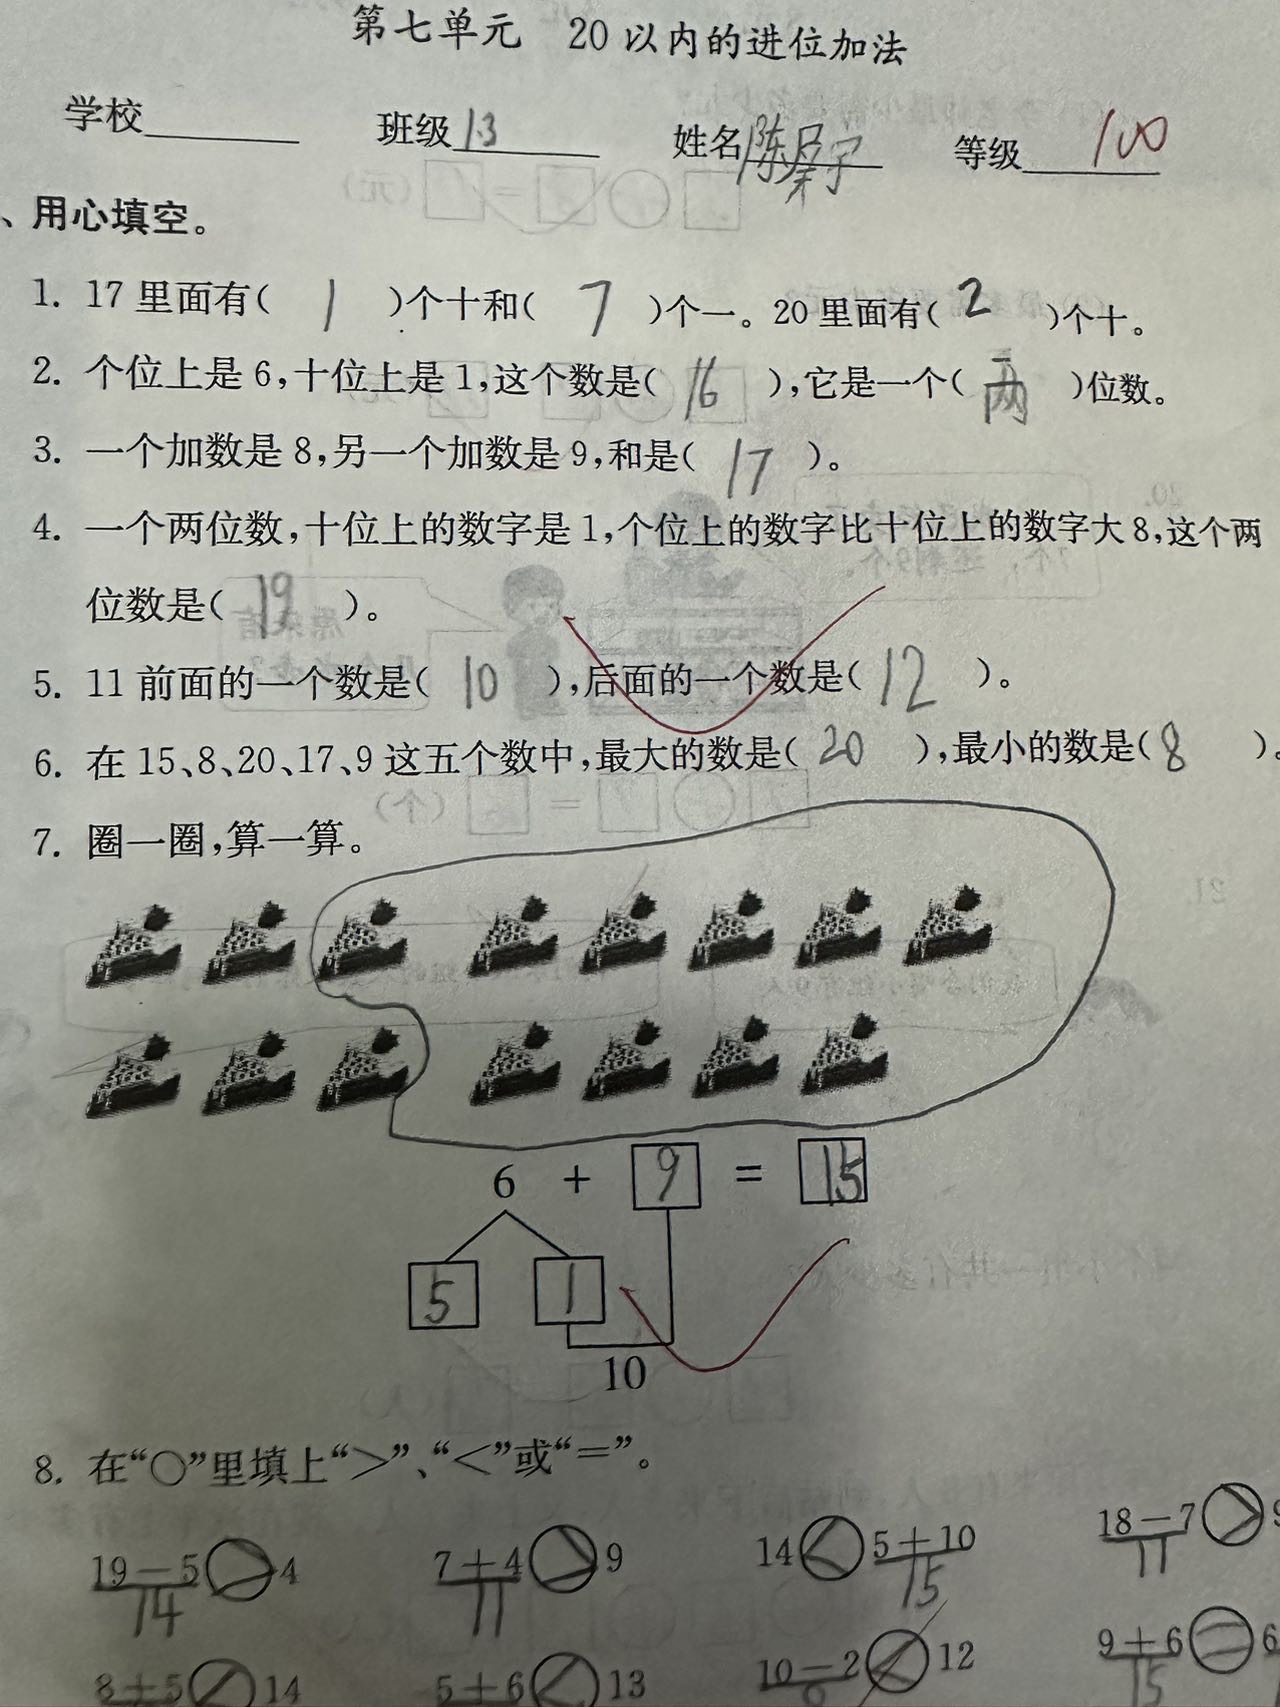 第七单元 20以内的进位加法
学校 班级 1.3 姓名 陈 宇 等级 100
、用心填空。
1. 17里面有( 1 )个十和( 7 )个一。20里面有( 2 )个十。
2. 个位上是6,十位上是1,这个数是( 16 ),它是一个( 两 )位数。
3. 一个加数是8,另一个加数是9,和是( 17 )。
4. 一个两位数,十位上的数字是1,个位上的数字比十位上的数字大8,这个两
位数是( 19 )。
5. 11前面的一个数是( 10 ),后面的一个数是( 12 )。
6. 在15、8、20、17、9这五个数中,最大的数是( 20 ),最小的数是( 8 )。
7. 圈一圈,算一算。
6 + 9 = 15
5 1
10
8. 在“○”里填上“>”、“<”或“=”。
19-5 > 4 7+4 > 9 14 < 5+10 18-7 > 9
14 11 15 11
8+5 < 14 5+6 < 13 10-2 < 12 9+6 = 6
15